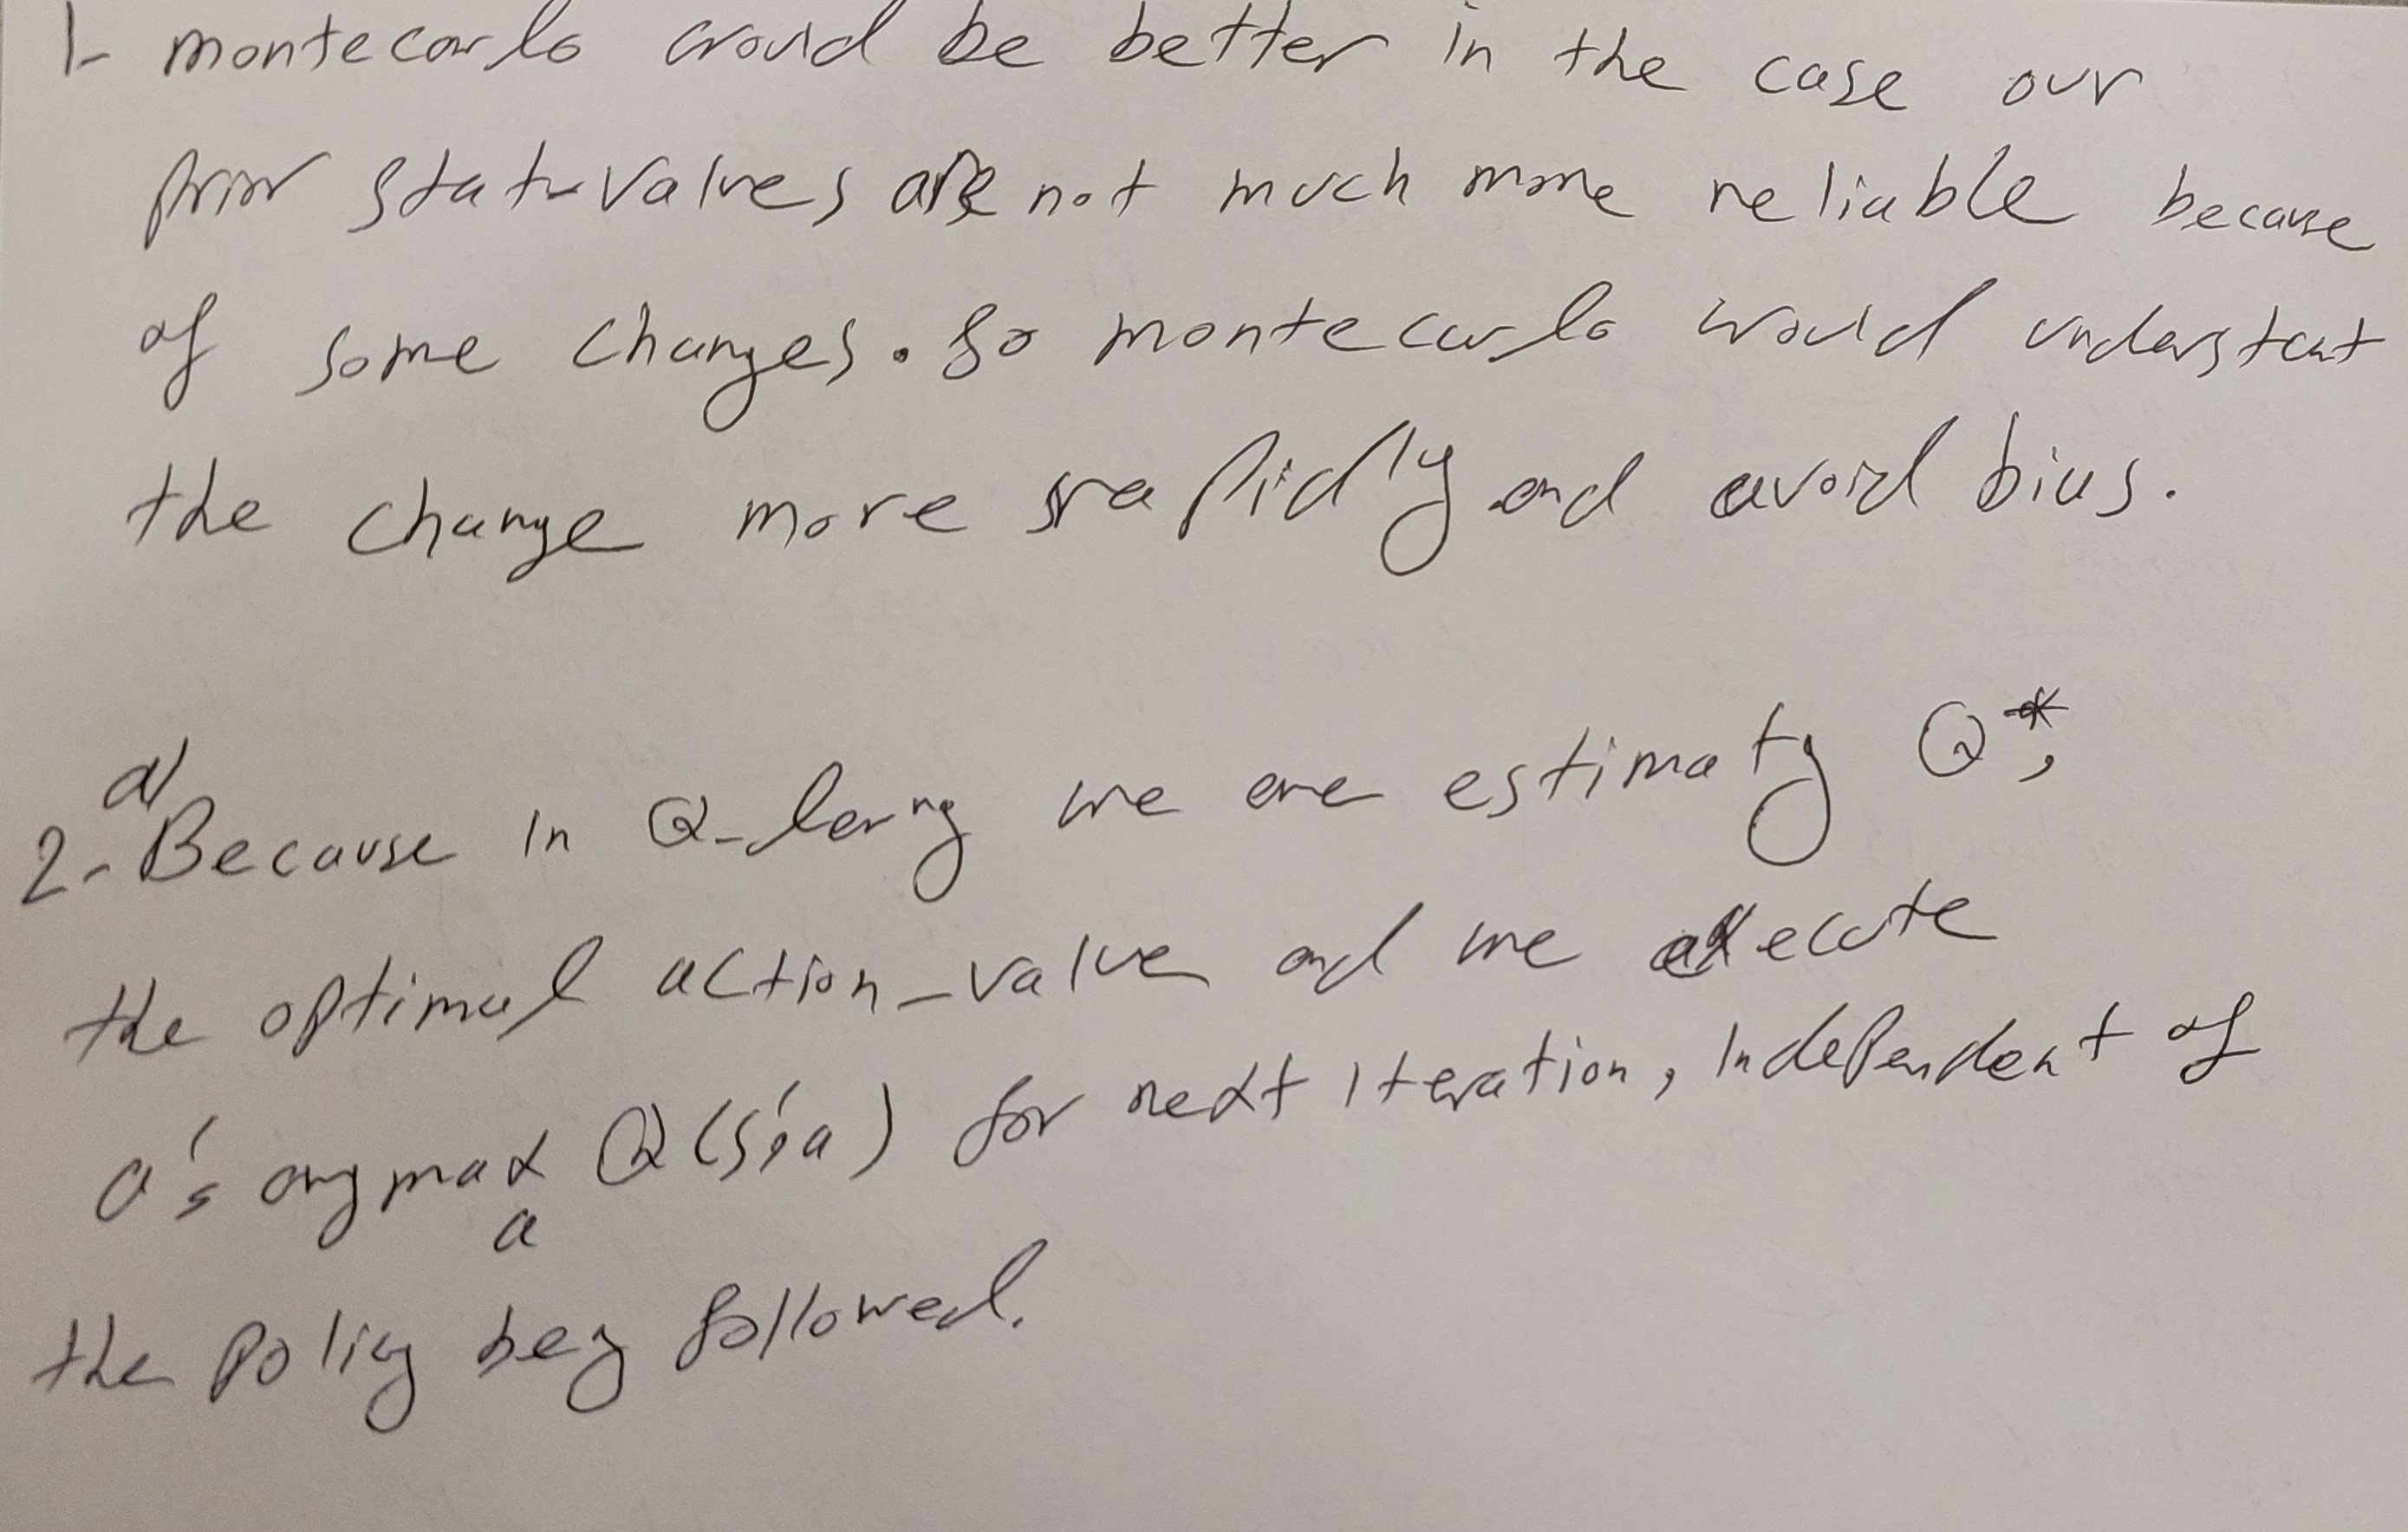 1- montecarlo would be better in the case our
prior state-values are not much more reliable because
of some changes. So montecarlo would understant
the change more rapidly and avoid bias.
a)
2- Because in Q-lerng we are estimatg Q*,
the optimal action-value and we execute
a's argmax Q(s',a) for next iteration, independent of
a
the policy beg followed.